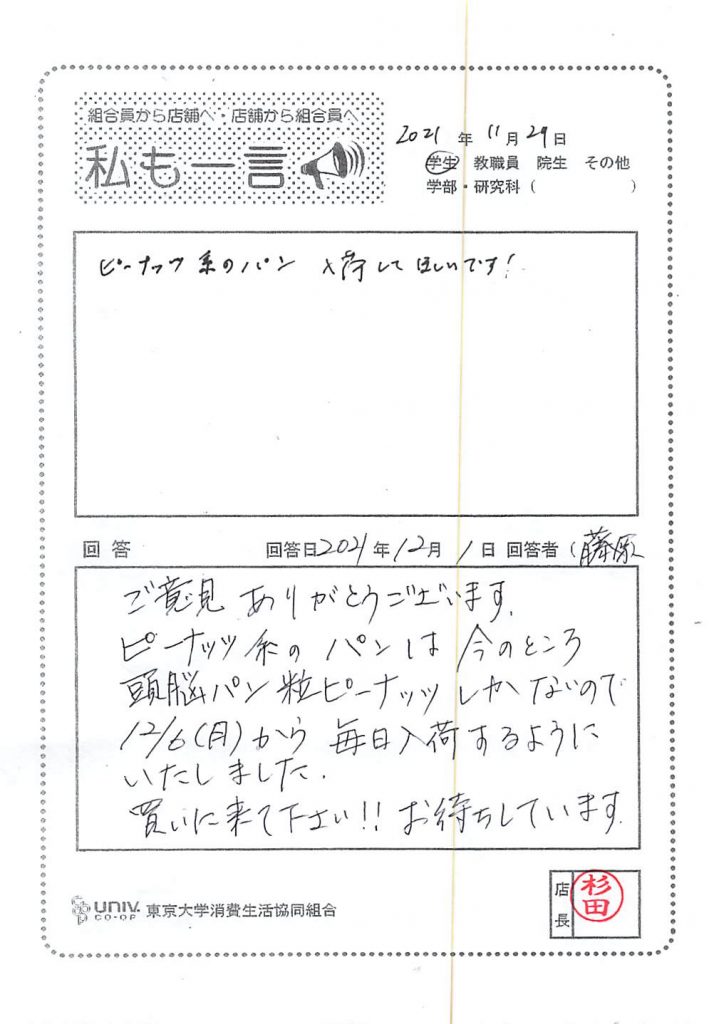 組合員から店舗へ・店舗から組合員へ
私も一言
2021年11月29日
学生 教職員 院生 その他
学部・研究科( )
ピーナッツ系のパン 入荷してほしいです!
回答 回答日2021年12月1日 回答者(藤原
ご意見ありがとうございます。
ピーナッツ系のパンは今のところ
頭脳パン粒ピーナッツしかないので
12/6(月)から毎日入荷するように
いたしました.
買いに来て下さい!!お待ちしています.
UNIV.
CO-OP
東京大学消費生活協同組合
店長
杉田